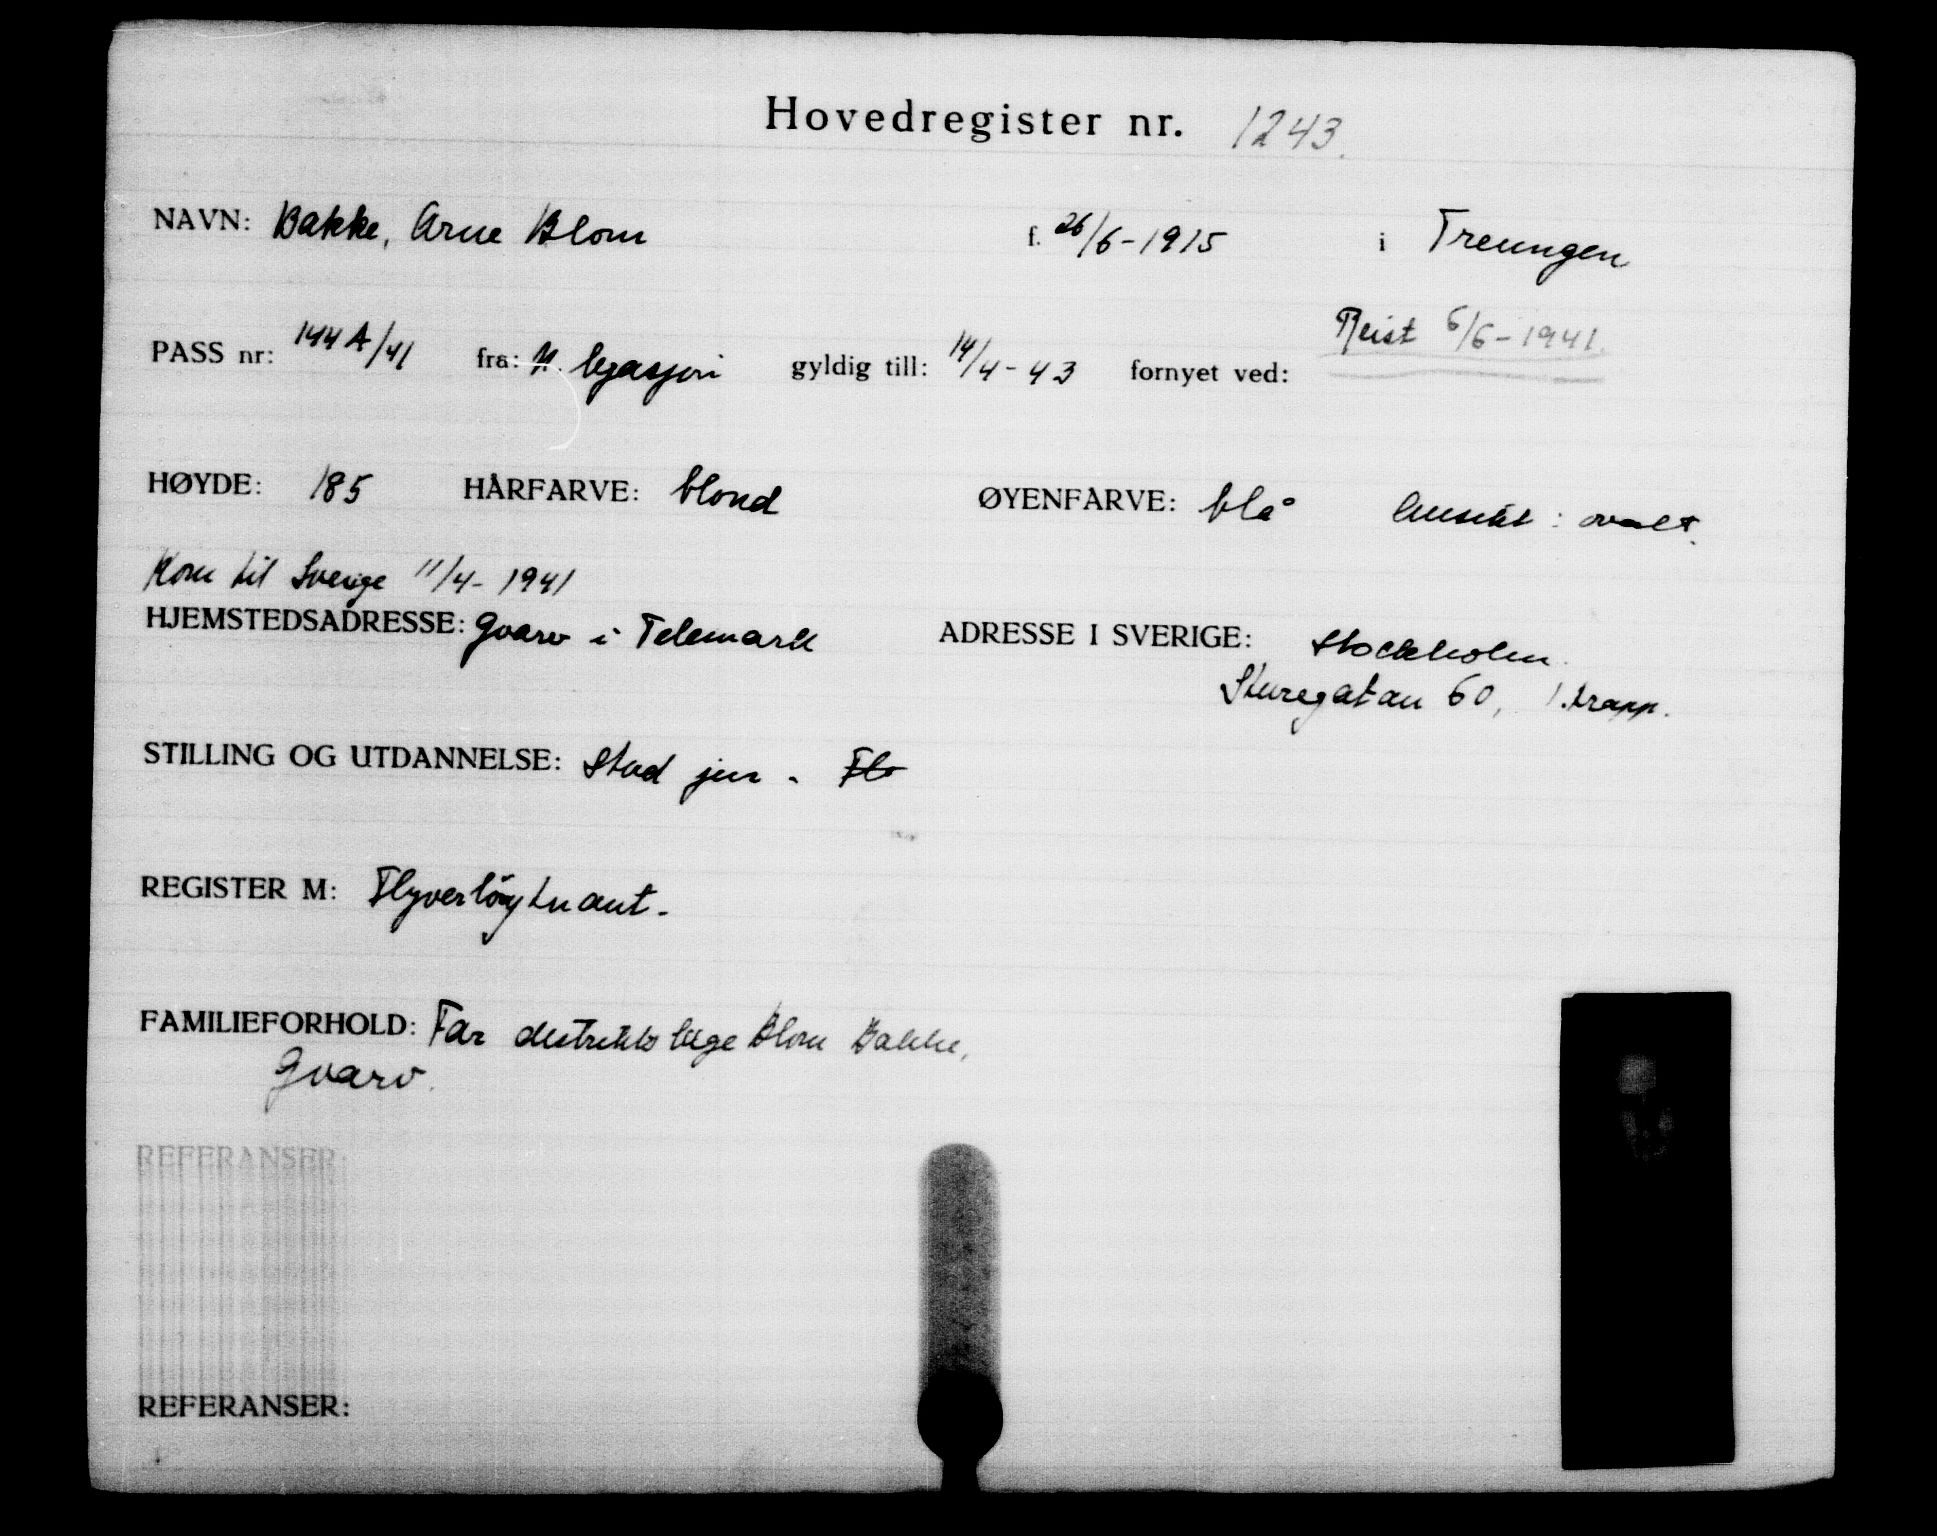 Hovedregister nr. 1243.
NAVN: Bakke, Arne Blom f. 26/6-1915 i Treungen
Reist 6/6-1941.
PASS nr: 144A/41 fra: N. legasjon gyldig till: 14/4-43 fornyet ved:
HØYDE: 185 HÅRFARVE: blond ØYENFARVE: blå Ansikt: ovalt.
Kom til Sverige 11/4-1941
HJEMSTEDSADRESSE: Gvarv i Telemark ADRESSE I SVERIGE: Stockholm.
Sturegatan 60, 1.trapp.
STILLING OG UTDANNELSE: Stud jur.
REGISTER M: Flyverløytnant.
FAMILIEFORHOLD: Far distriktslege Blom Bakke,
Gvarv.
REFERANSER:
REFERANSER: